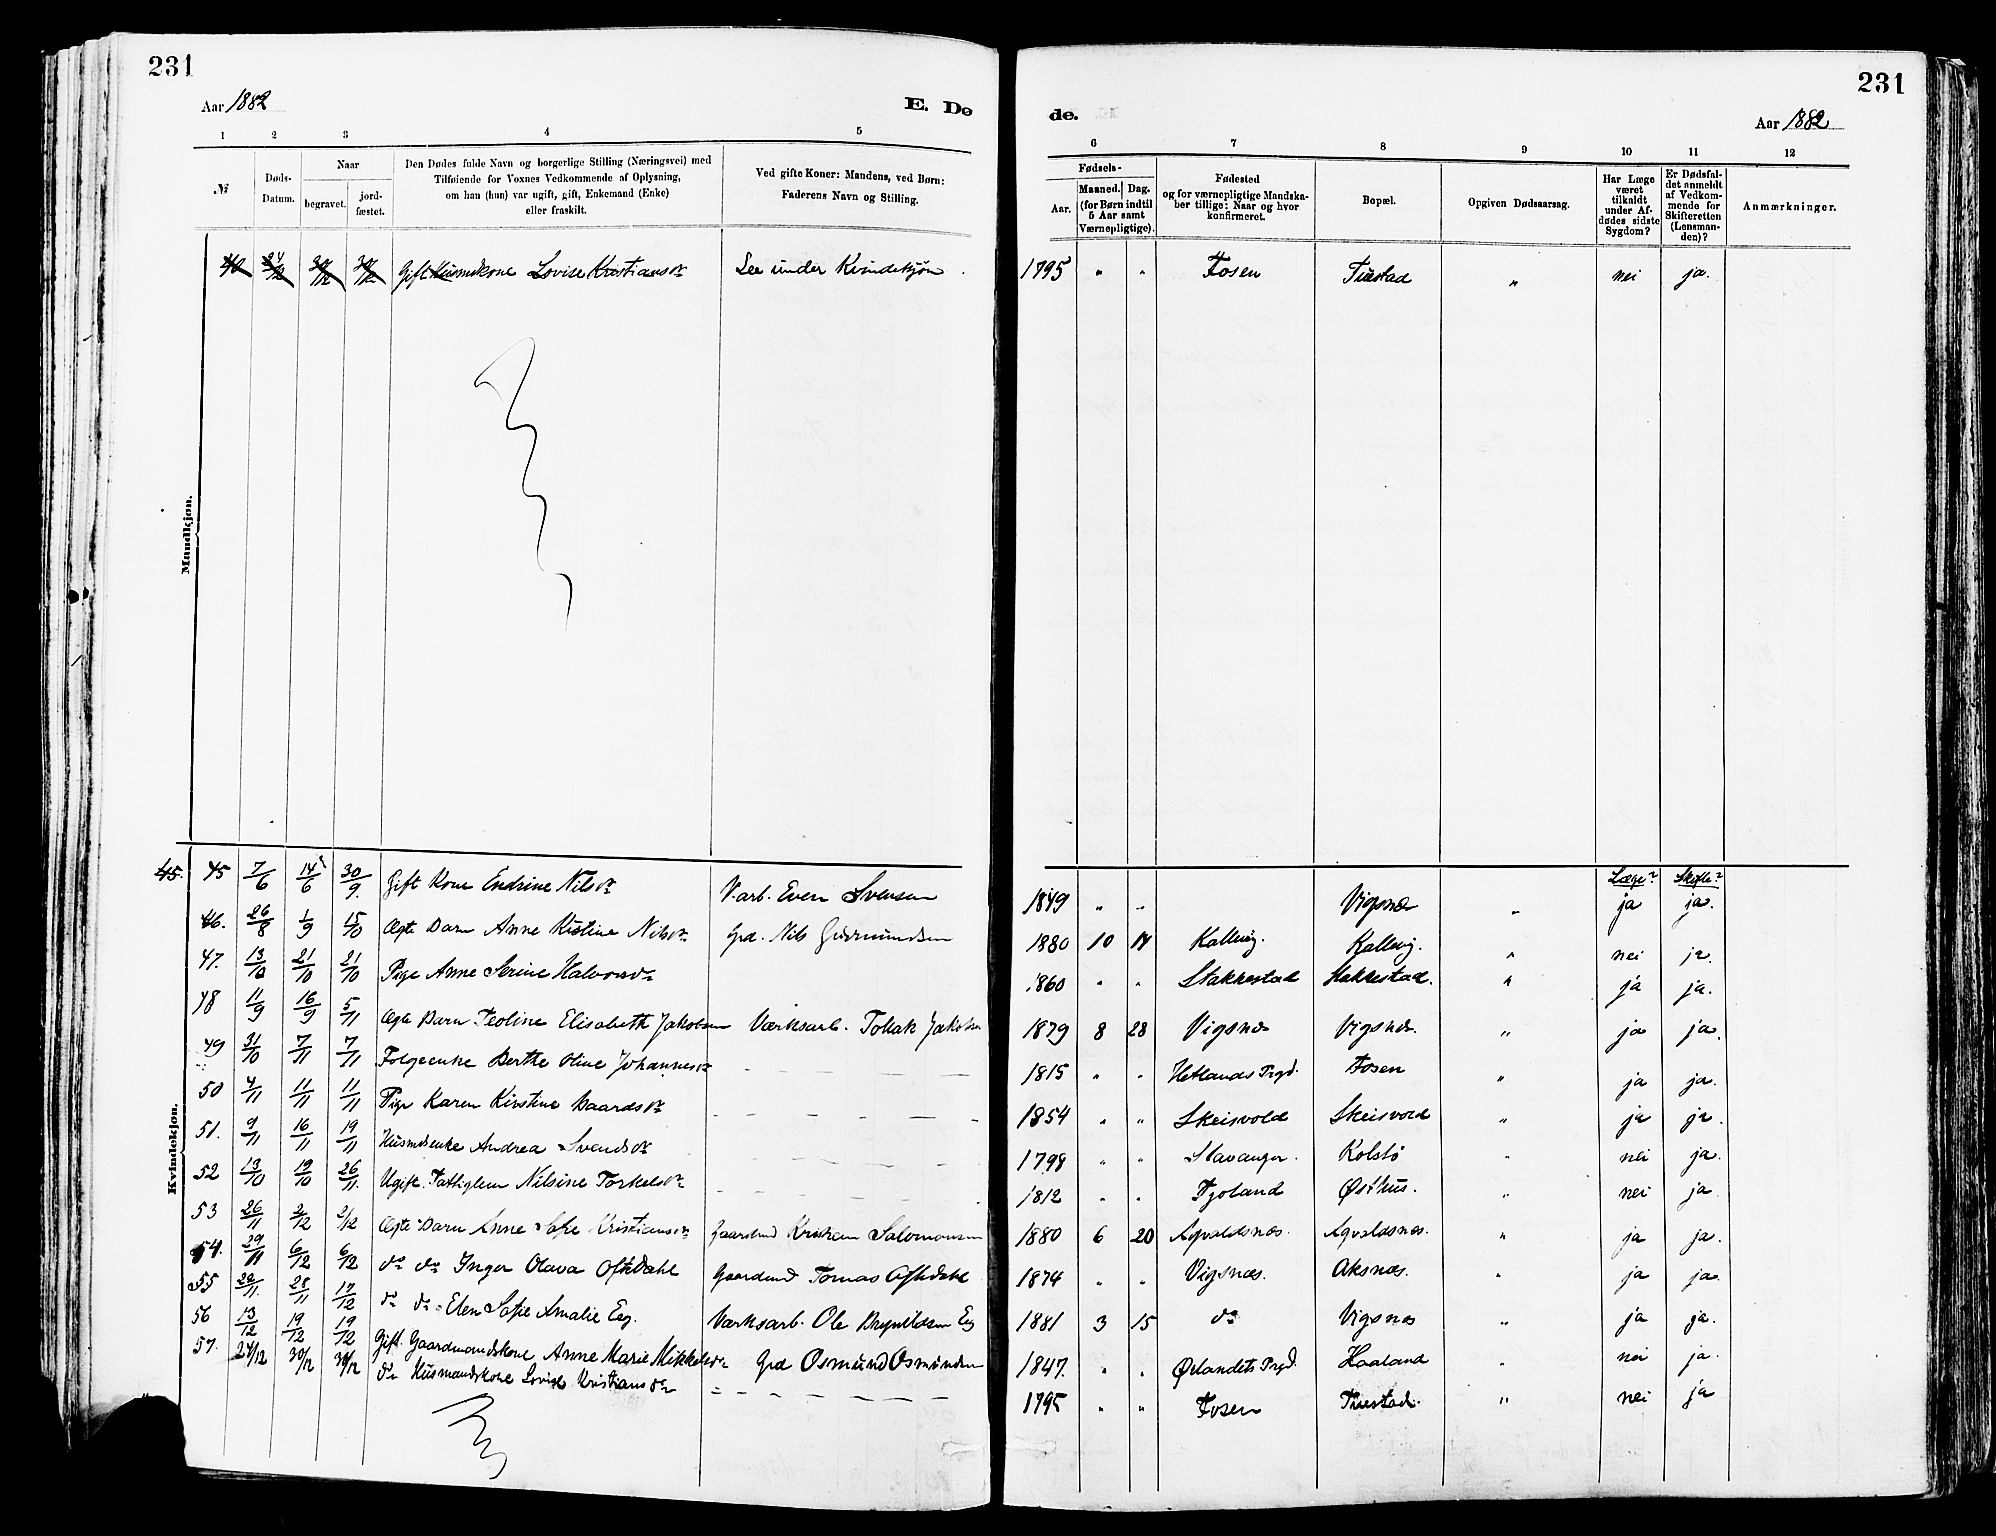 231
Aar 1882
E. De
1 2 3 4 5
№
Døds-
Datum.
Naar
begravet.
jord-
fæstet.
Den Dødes fulde Navn og borgerlige Stilling (Næringsvei) med
Tilføiende for Voxnes Vedkommende af Oplysning,
om han (hun) var ugift, gift, Enkemand (Enke)
eller fraskilt.
Ved gifte Koner: Mandens, ved Børn:
Faderens Navn og Stilling.
231
de.
Aar 1882
6 7 8 9 10 11 12
Fødsels-
Aar.
Maaned. Dag.
(for Børn indtil
5 Aar samt
Værnepligtige).
Fødested
og for værnepligtige Mandska-
ber tillige: Naar og hvor
konfirmeret.
Bopæl.
Opgiven Dødsaarsag.
Har Læge
været
tilkaldt
under Af-
dødes sidste
Sygdom?
Er Dødsfal-
det anmeldt
af Vedkom-
mende for
Skifteretten
(Lensman-
den)?
Anmærkninger.
Mandkjøn.
Gift Husmdskone Lovise Kristiansdr See under Kvindekjøn 1795 " " Fosen Tuestad " nei ja.
Kvindekjøn.
Læge? Skifte?
45. 45 7/6 14/6 30/9. Gift Kone Endrine Nilsdr V.arb. Even Svensen 1849 " " Vigsnæs " ja ja.
46. 26/8 1/9 15/10 Ægte Barn Anne Kistine Nilsdr. Grd. Nils Gudmundsen 1880 10 14 Kallevig. Kallevig. " nei ja.
47. 13/10 21/10 21/10 Pige Anne Serine Halvorsdr 1860 " " Stakkestad Stakkestad. " ja ja.
48 11/9 16/9 5/11 Ægte Barn Teoline Elisabeth Jakobsen Værksarb. Tollak Jakobsen 1879 8 28 Vigsnæs Vigsnæs. " ja ja.
49 31/10 7/11 7/11 Folgeenke Berthe Oline Johannesdr 1815 " " Hetlands Prgd. Fosen " ja ja.
50 4/11 11/11 11/11 Pige Karen Kirstine Baardsdr 1854 " " Skeisvold Skeisvold " ja ja.
51. 9/11 16/11 19/11 Husmdsenke Andrea Svendsdr 1798 " " Stavanger. Kolstø " nei ja.
52 13/10 19/10 26/11. Ugift. Fattiglem Nilsine Torkelsdr 1812 " " Fjoland Østhus. " nei ja
53 26/11 2/12 2/12 Ægte Barn Anne Sofie Kristiansdr Gaardmd Kristian Salomonsen 1880 6 20 Agvaldsnæs. Agvaldsnæs. " ja ja.
54. 29/11 6/12 6/12 do do Inger Olava Oftedahl Gaardmd Tomas Oftedahl 1874 " " Vigsnæs. Aksnæs. " ja ja.
55 28/11 17/12 do do Elen Sofie Amalie Eeg. Værksarb. Ole Brynildsen Eeg 1881 3 15 do Vigsnæs " ja ja.
56 13/12 19/12 19/12 Gift Gaardmandskone Anne Marie Mikkelsdr Grd Osmund Osmundsen 1847. " " Ørlandets Prgd. Haaland " nei ja.
57. 24/12 30/12 30/12 do Husmandskone Lovise Kristiansdr 1795 " " Fosen Tuestad. " nei ja